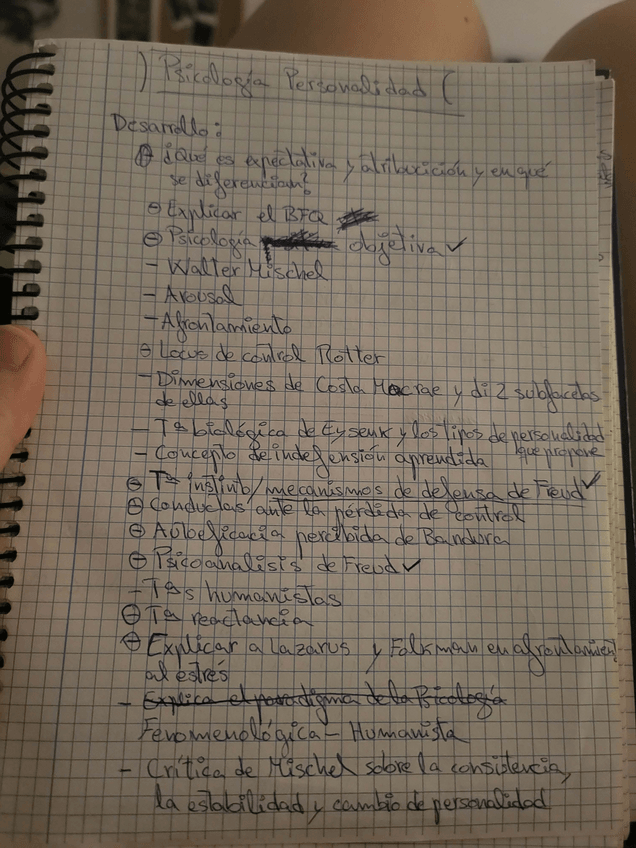 ) Psicología Personalidad (
Desarrollo:
⊕ ¿Qué es expectativa y atribucición y en qué
se diferencian?
⊖ Explicar el BFQ
⊖ Psicología objetiva ✓
- Walter Mischel
- Arousal
- Afrontamiento
⊖ Locus de control Rotter
- Dimensiones de Costa Macrae y di 2 subfacetas
de ellas
- Tª biológica de Eysenk y los tipos de personalidad
que propone
- Concepto de indefensión aprendida
⊖ Tª instinto/mecanismos de defensa de Freud ✓
⊕ Conductas ante la pérdida de control
⊖ Autoeficacia percibida de Bandura
⊖ Psicoanalisis de Freud ✓
- Tªs humanistas
⊖ Tª reactancia
⊖ Explicar a Lazarus y Folkman en afrontamient
al estrés
- Explica el paradigma de la Psicología
Fenomenológica - Humanista
- Crítica de Mischel sobre la consistencia,
la estabilidad y cambio de personalidad